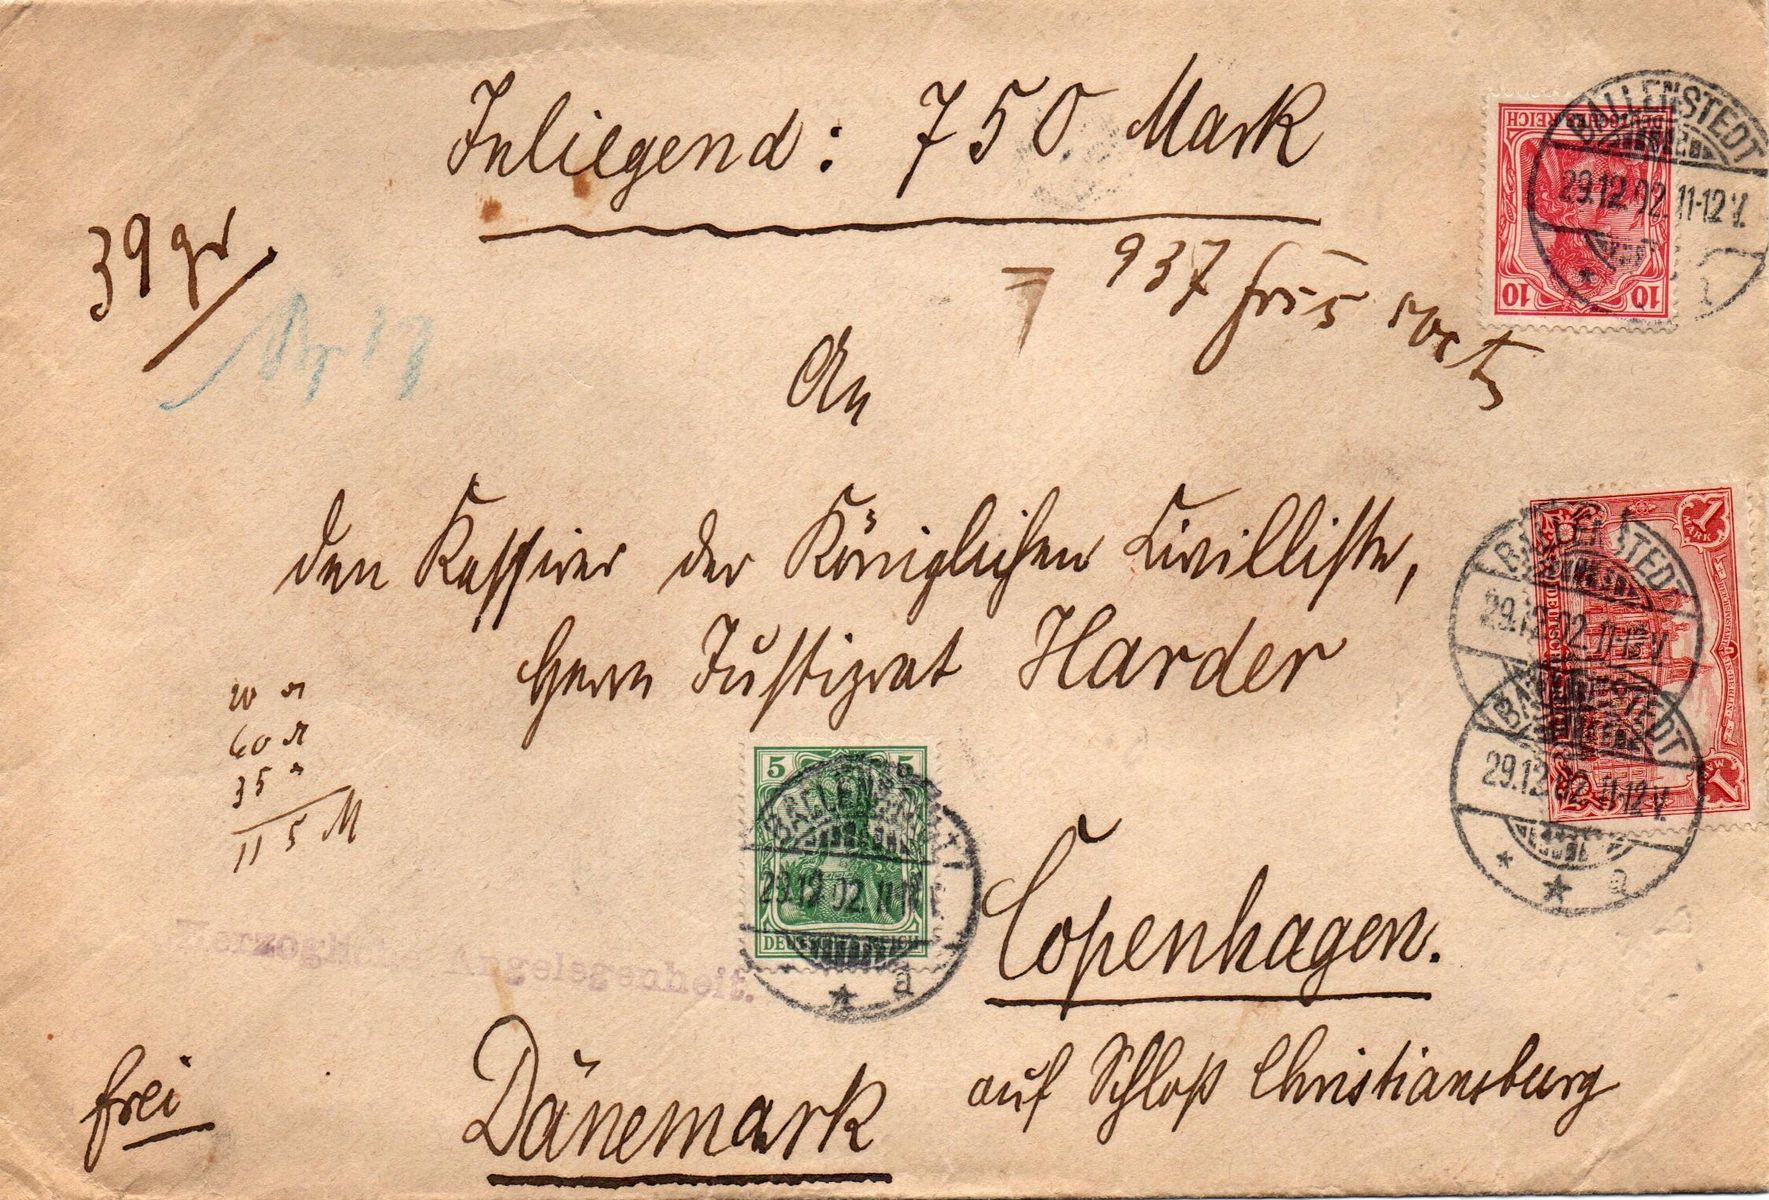 Inliegend: 750 Mark
39 gr
= 937 frcs
An
den Kassirer der Königlichen Civilliste,
Herrn Justizrat Harder
20
60
35
115 M
Copenhagen.
auf Schloß Christiansburg
Dänemark
frei
Herzogliche Angelegenheit.
DEUTSCHES REICH
10 10
BALLENSTEDT
29.12.02. 11-12 V.
1 MARK
BALLENSTEDT
29.12.02. 11-12 V.
BALLENSTEDT
29.12.02. 11-12 V.
* * a
5 5
DEUTSCHES REICH
BALLENSTEDT
29.12.02. 11-12 V.
* a